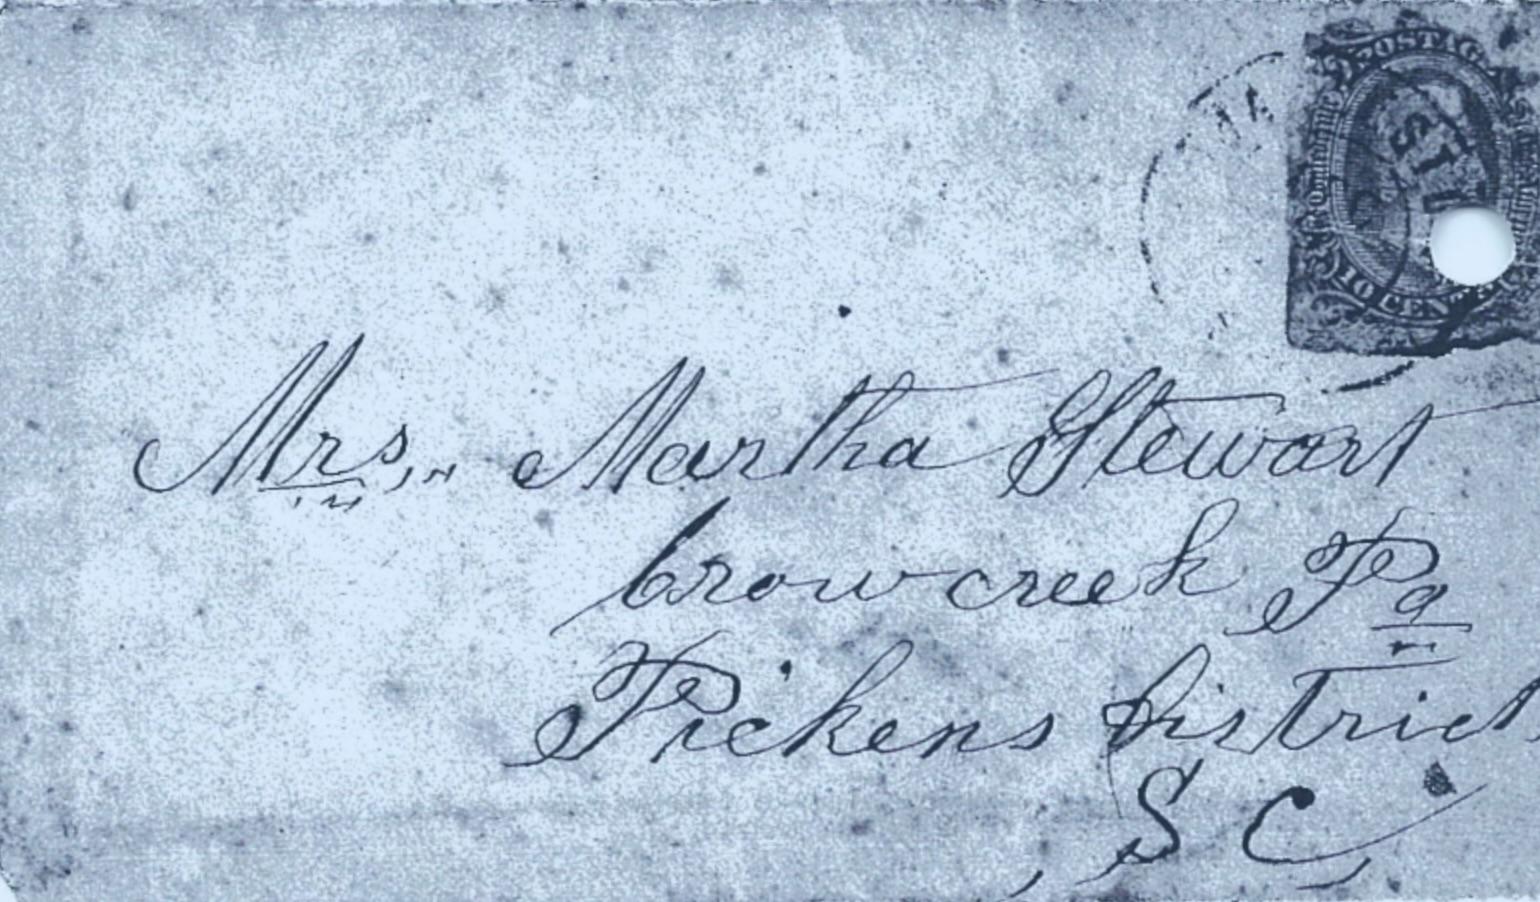 POSTAGE
TEN CENTS
Mrs, Martha Stewart
Crow creek Pa
Pickens District
S C